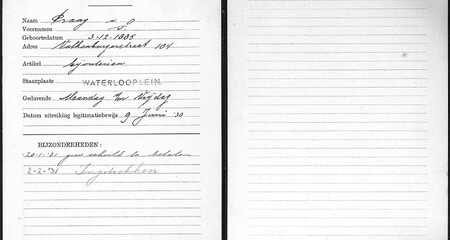 Naam Praag v.
Voornamen S.
Geboortedatum 3-12-1885
Adres Valkenburgerstraat 104
Artikel bijouterien
Staanplaats WATERLOOPLEIN.
Gedurende Maandag t/m Vrijdag
Datum uitreiking legitimatiebewijs 9 Juni '30
BIJZONDERHEDEN:
20-1-'31 geen schuld te betalen
2-2-'31 Ingetrokken